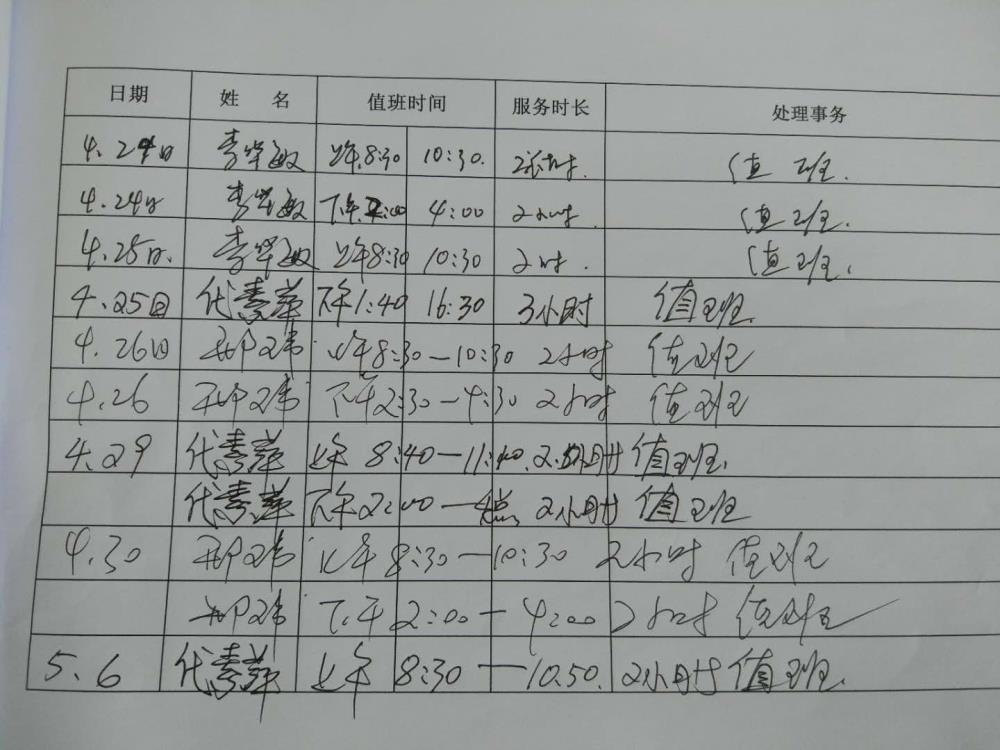 日期 姓 名 值班时间 服务时长 处理事务
4.24日 李学敏 上午8:30 10:30. 2小时. 值 班.
4.24日 李学敏 下午2:00 4:00 2小时 值班.
4.25日. 李学敏 上午8:30 10:30 2时. 值班.
4.25日 代素萍 下午1:40 16:30 3小时 值班
4.26日 上午8:30—10:30 2小时 值班
4.26 下午2:30—4:30 2小时 值班
4.29 代素萍 上午 8:40—11:00. 2小时 值班.
代素萍 下午2:00—4点 2小时 值班
4.30 上午8:30—10:30 2小时 值班
下午2:00—4:00 2小时 值班
5.6 代素萍 上午 8:30—10.50. 2小时 值班.